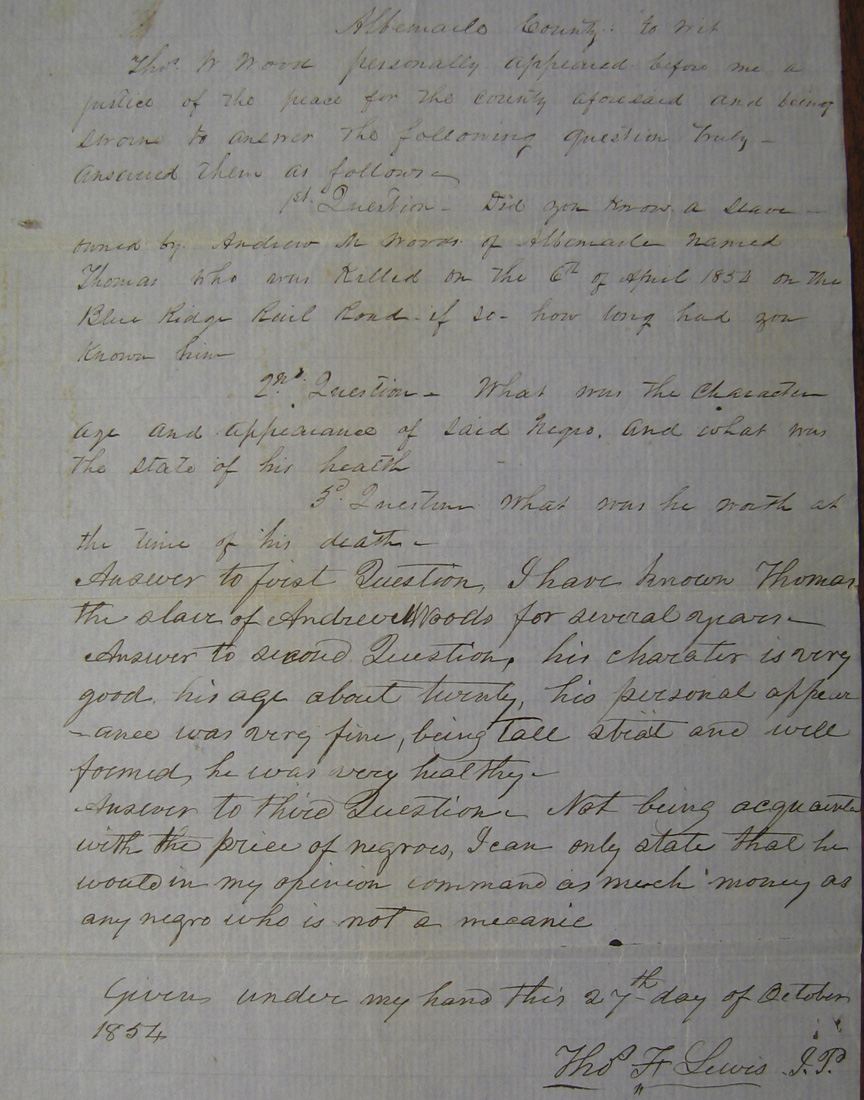 Albemarle County: to wit
Thos. W Wood personally appeared before me a
justice of the peace for the county aforesaid and being
sworne to answer the following question truly -
answered them as follows -
1st. Question - Did you know a slave -
owned by Andrew M Woods of Albemarle named
Thomas who was Killed on the 6th of April 1854 on the
Blue Ridge Rail Road - if so - how long had you
known him
2nd. Question - What was the character
age and appearance of said negro. and what was
the state of his health
3d. Question What was he worth at
the time of his death -
Answer to first Question, I have known Thomas
the slave of Andrew Woods for several years -
Answer to second Question, his charater is very
good, his age about twenty, his personal appear
-ance was very fine, being tall strait and well
formed, he was very healthy -
Answer to third Question - Not being acquainte
with the price of negroes, I can only state that he
would in my opinion command as much money as
any negro who is not a mecanic
Given under my hand this 27th day of October
1854
Thos F Lewis J.P.